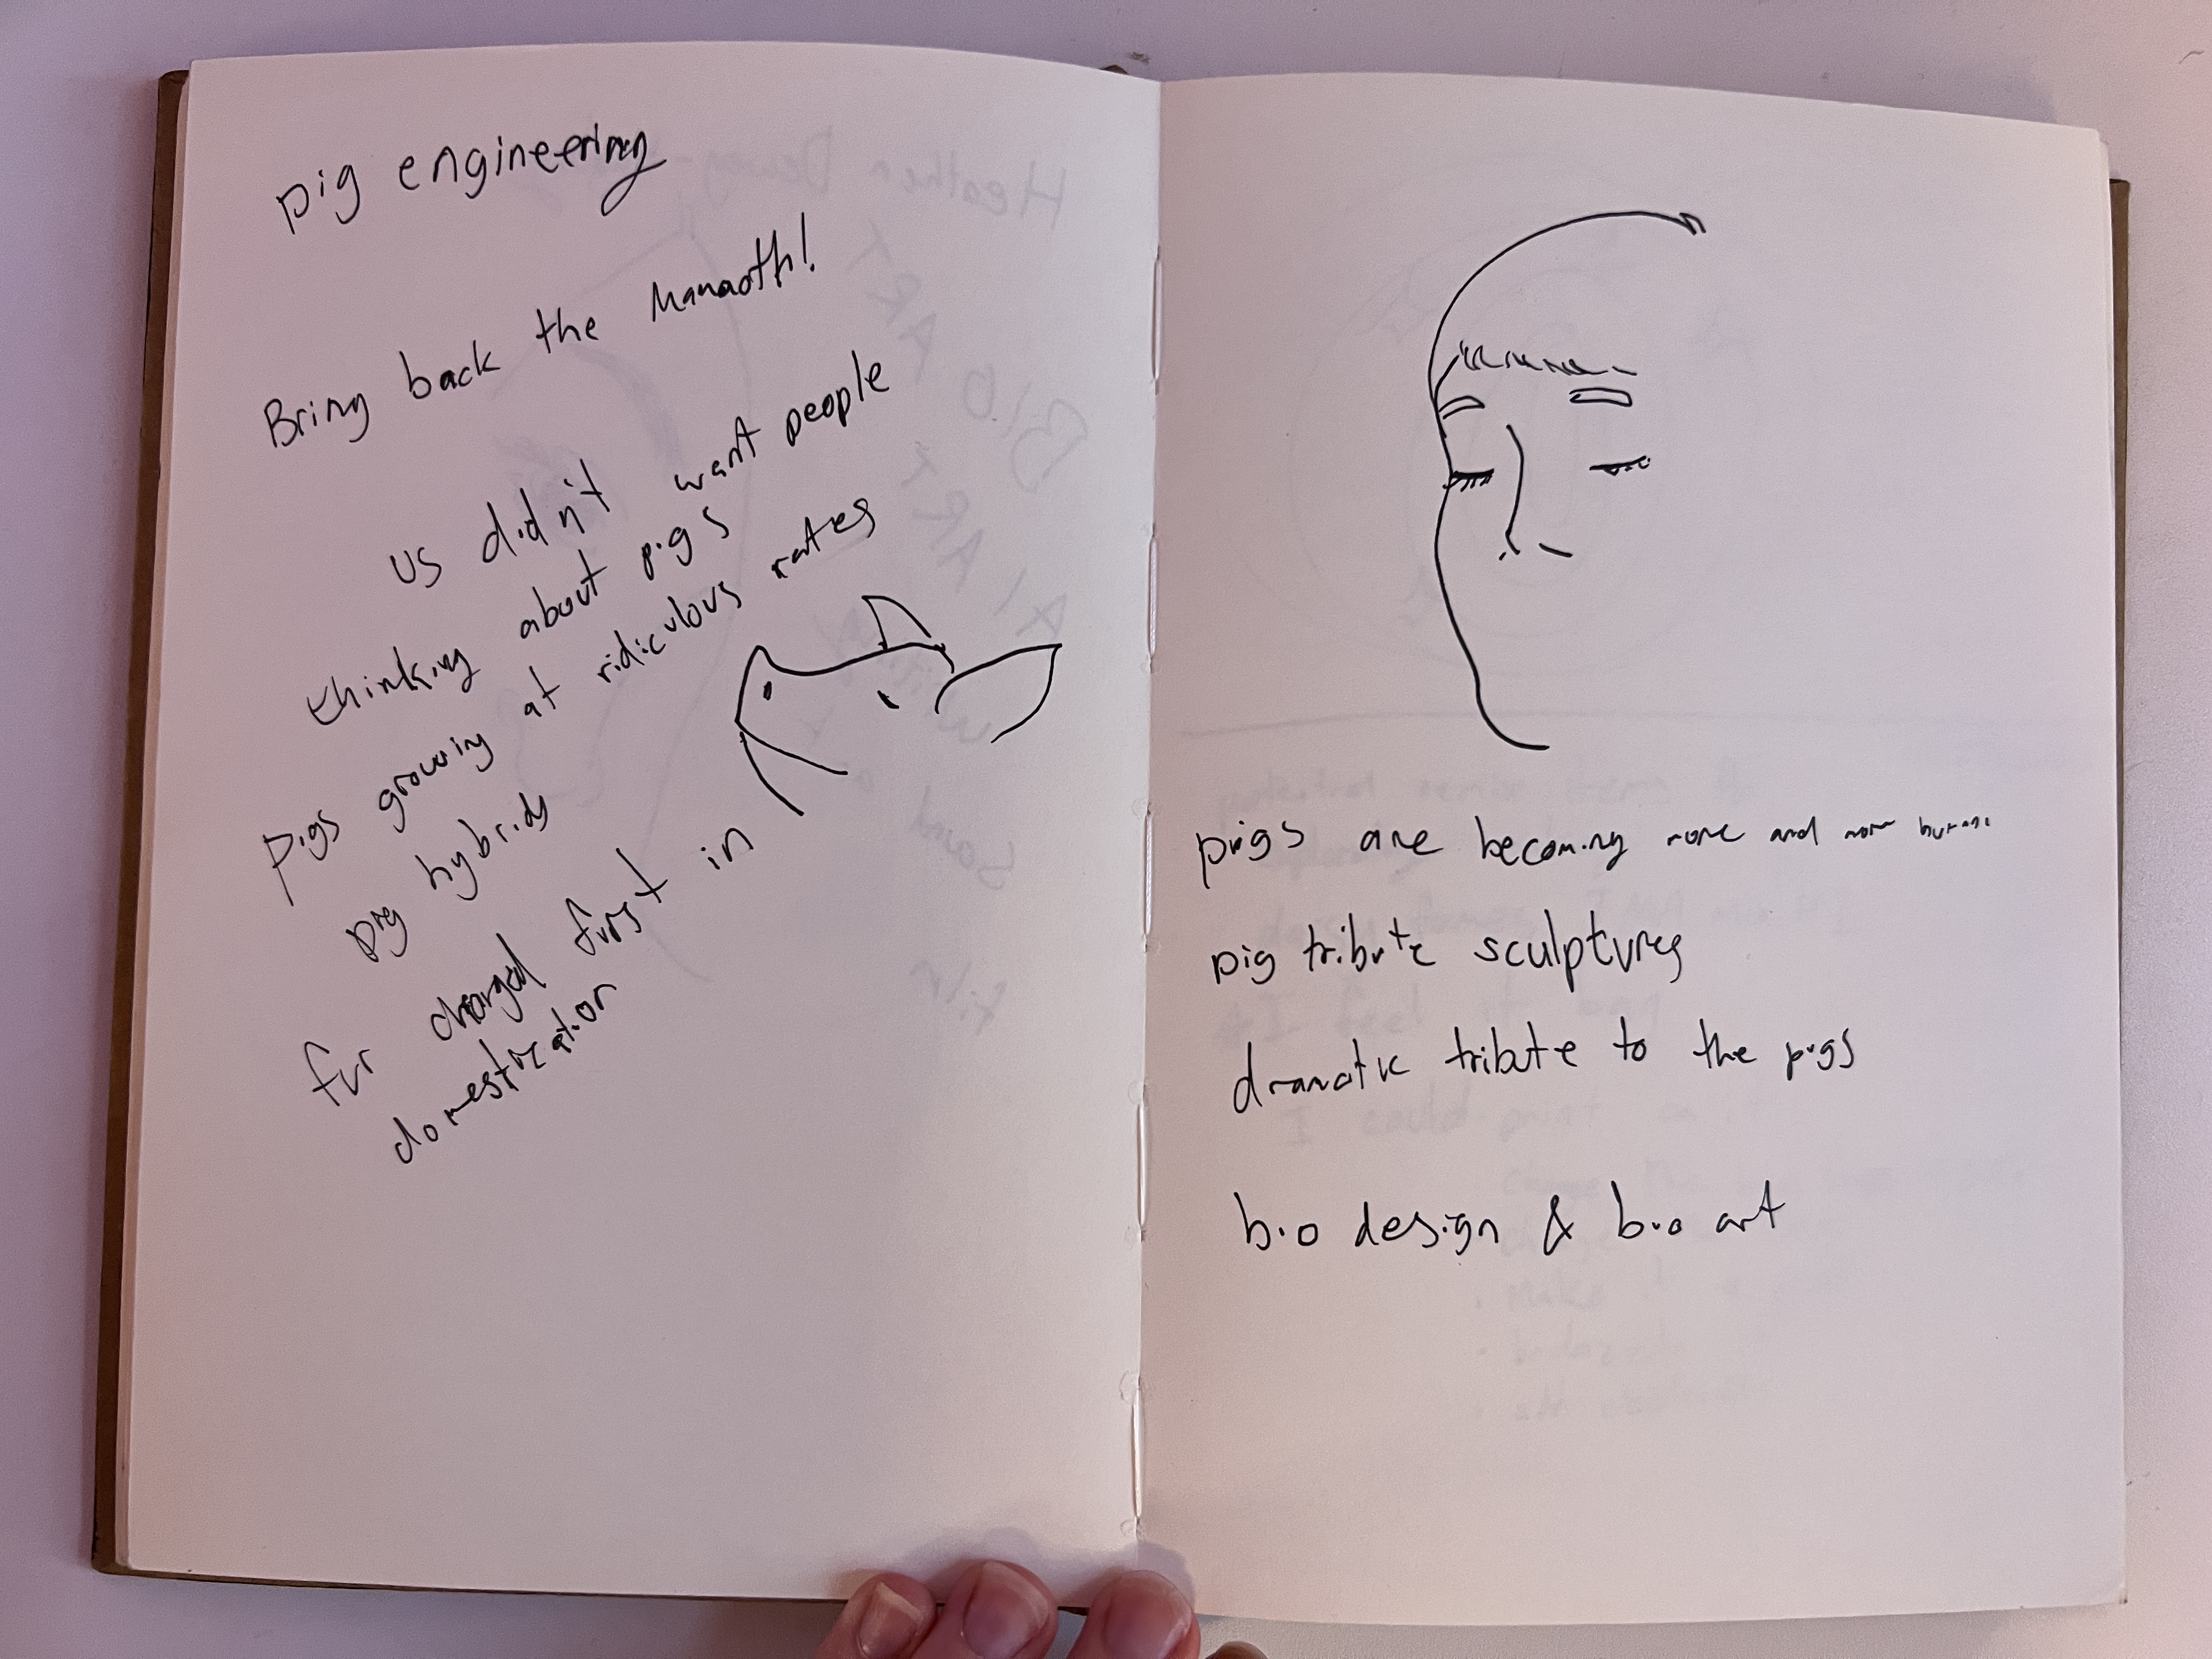 pig engineering
Bring back the Mamaoth!
US didn't want people
thinking about pigs
pigs growing at ridiculous rates
pig hybrids
fur changed first in
domestication
pigs are becoming more and more human
pig tribute sculptures
dramatic tribute to the pigs
bio design & bio art